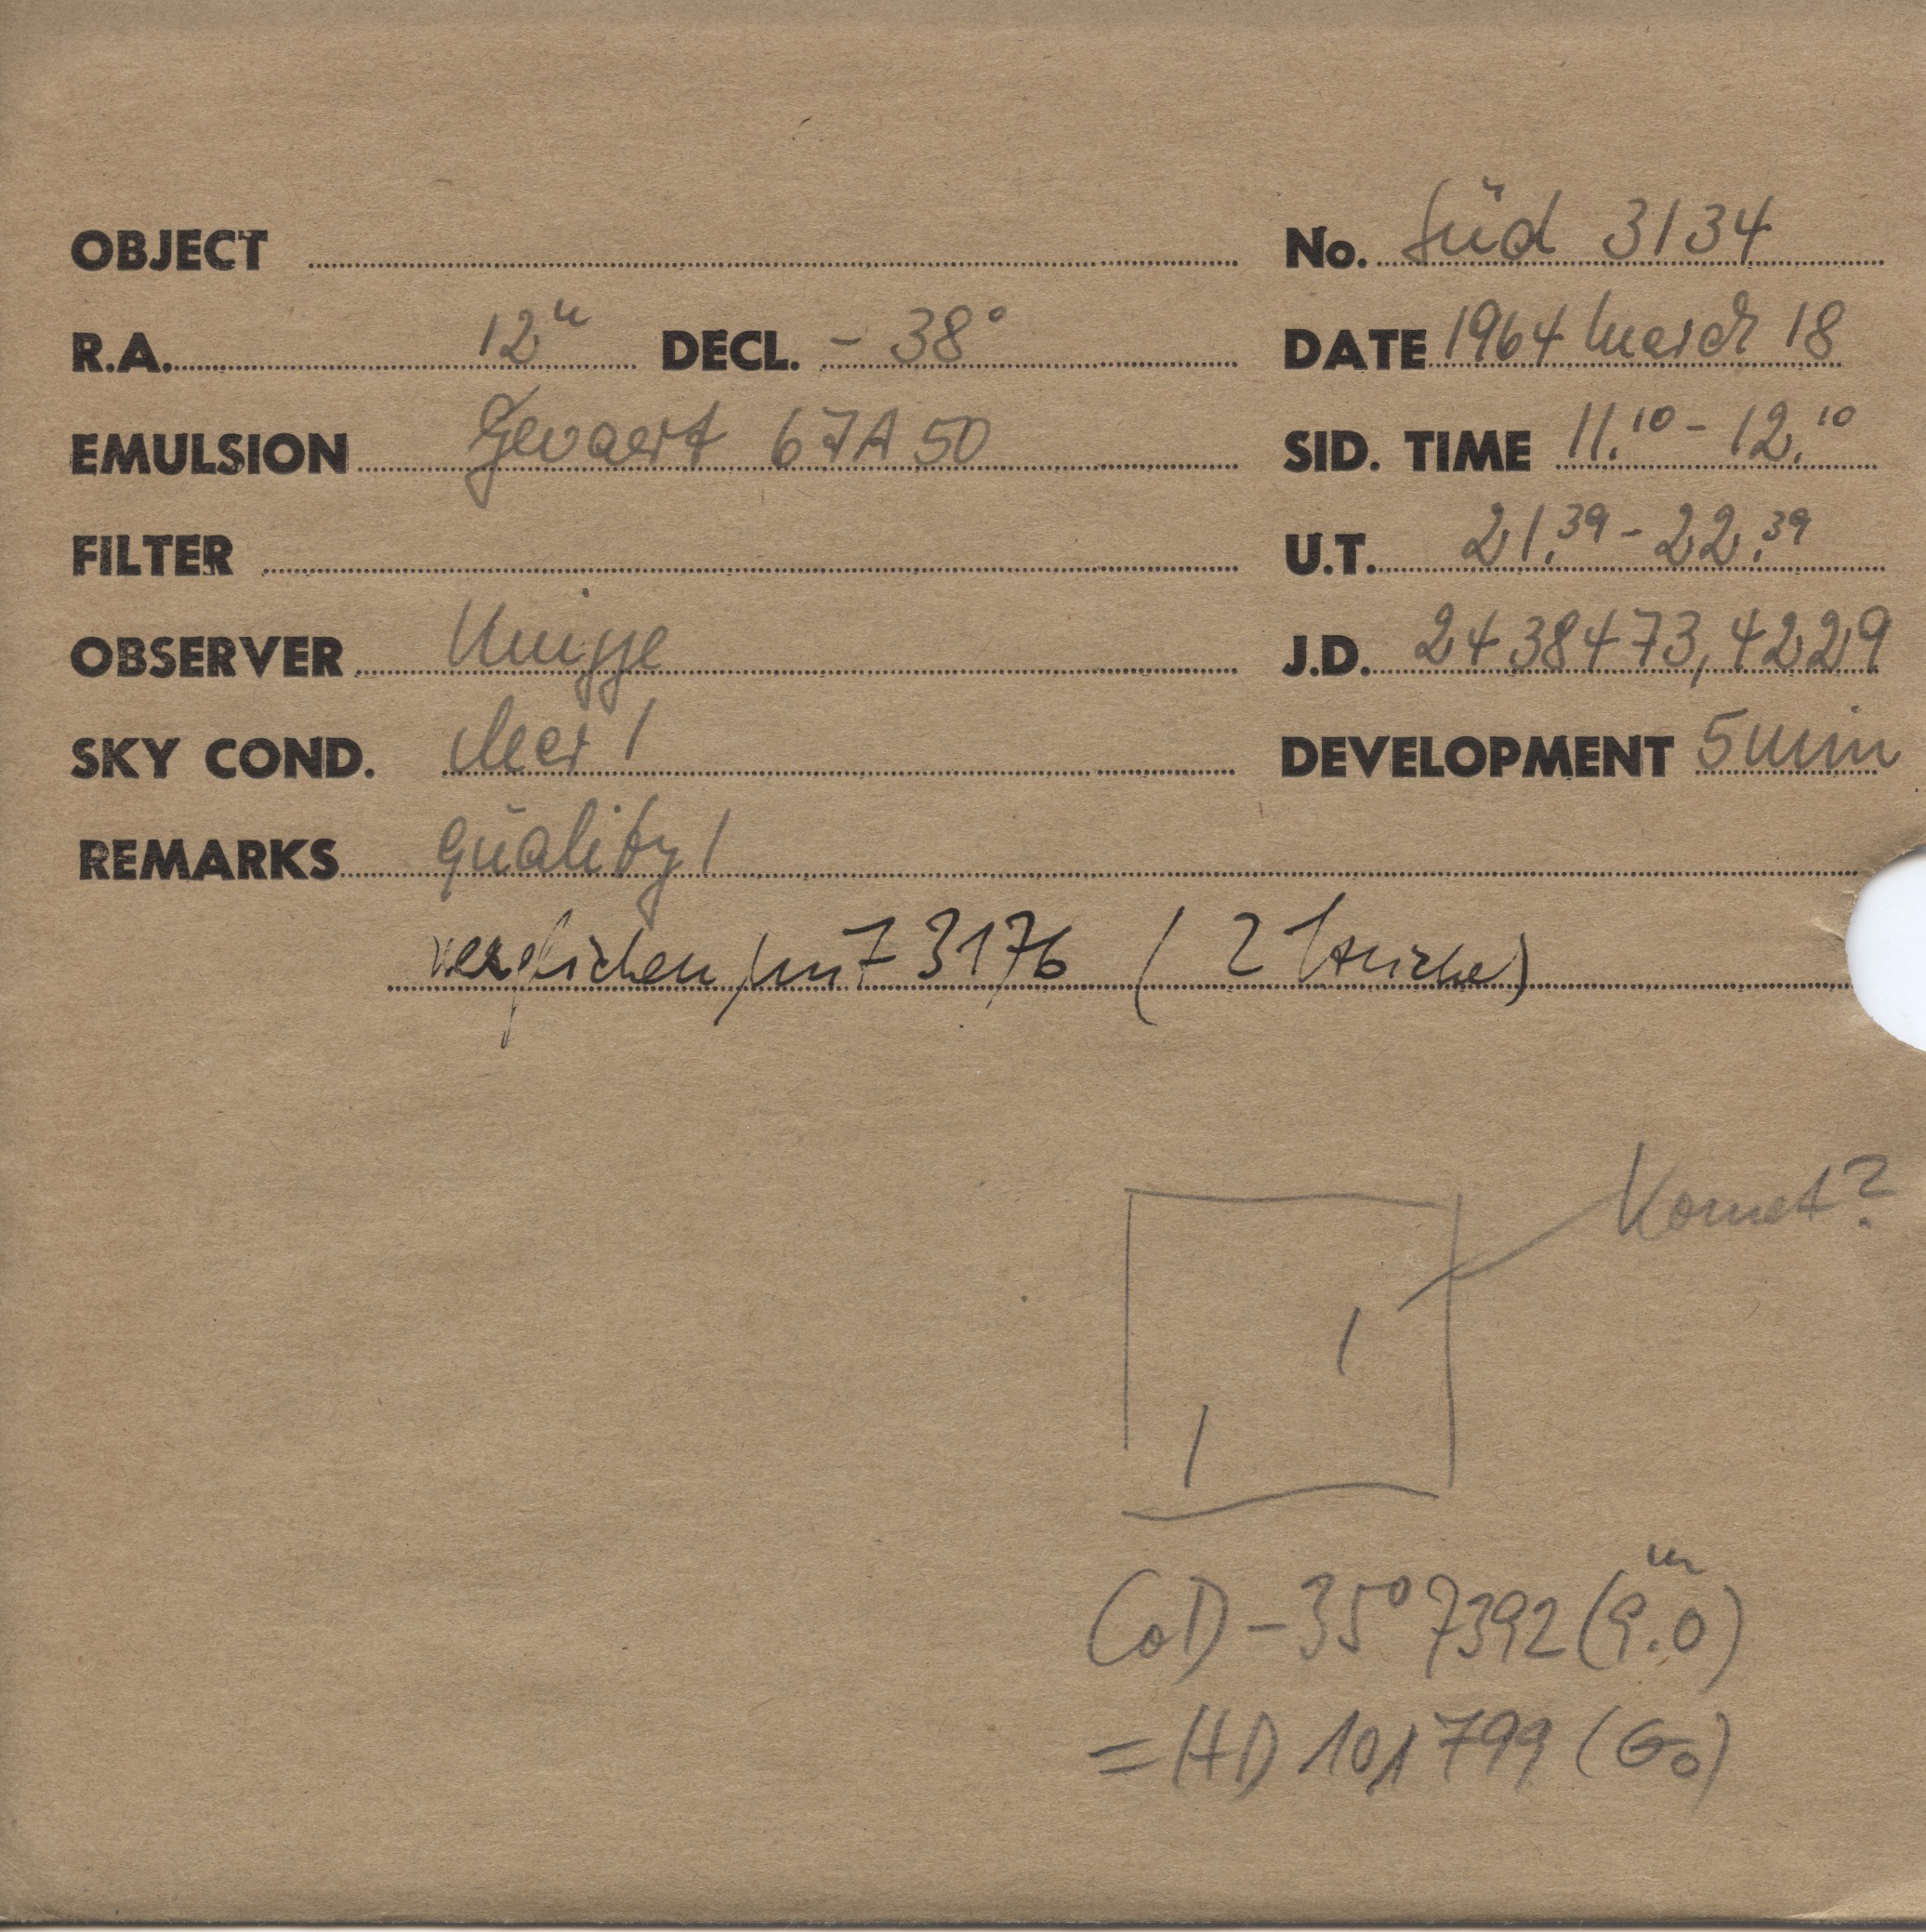 OBJECT No. Süd 3134
R.A. 12ʰ DECL. - 38° DATE 1964 March 18
EMULSION Gevaert 67A50 SID. TIME 11.10 - 12.10
FILTER U.T. 21.39 - 22.39
OBSERVER J.D. 2438473,4229
SKY COND. clear 1 DEVELOPMENT 5 min
REMARKS Quality 1
verglichen mit 3176 ( 2 Striche)
Komet?
CoD -35° 7392 (9.ᵐ0)
= HD 101799 (G0)